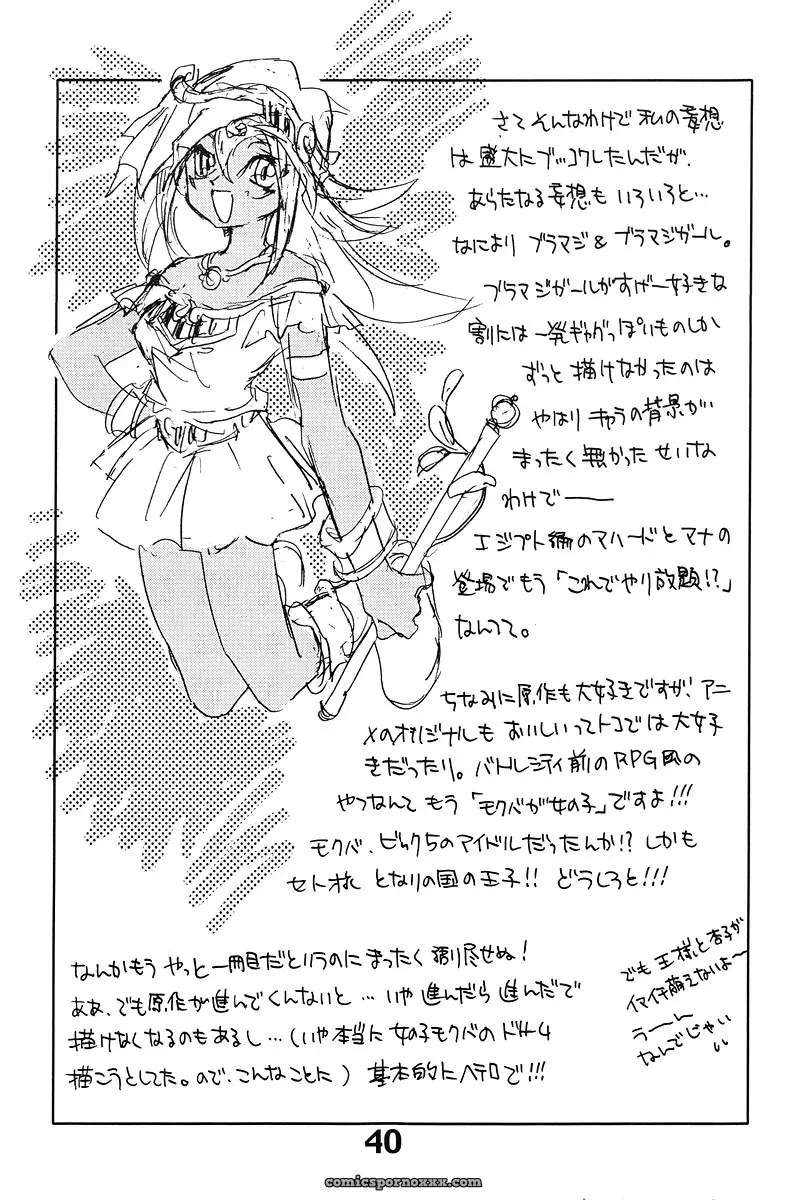 さてそんなわけで私の妄想
は盛大にブッコワしたんだが、
あらたなる妄想もいろいろと…
なにより ブラマジ & ブラマジガール。
ブラマジガールがすげー好きな
割には一発ギャグっぽいものしか
ずっと描けなかったのは
やはりキャラの背景が
まったく無かったせいな
わけで――
エジプト編のマハードとマナの
登場でもう「これでやり放題!?」
なんてて。
ちなみに原作も大好きですが、アニ
メのオリジナルもおいしいってトコでは大好
きだったり。バトルシティ前のRPG風の
やつなんてもう「モクバが女の子」ですよ!!!
モクバ、ビック5のアイドルだったんか!? しかも
セト となりの国の王子!! どうしろと!!!
なんかもうやっと一冊目だというのにまったく 尽せぬ!
ああ、でも原作が進んでくんないと…いや進んだら進んだで
描けなくなるのもあるし…(いや本当に女の子モクバの
描こうとしてた。ので、こんなことに) 基本的にヘテロで!!!
でも王様と杏子が
イマイチ萌えないよ～
うーーん
なんでじゃい
40
comicspornoxxx.com